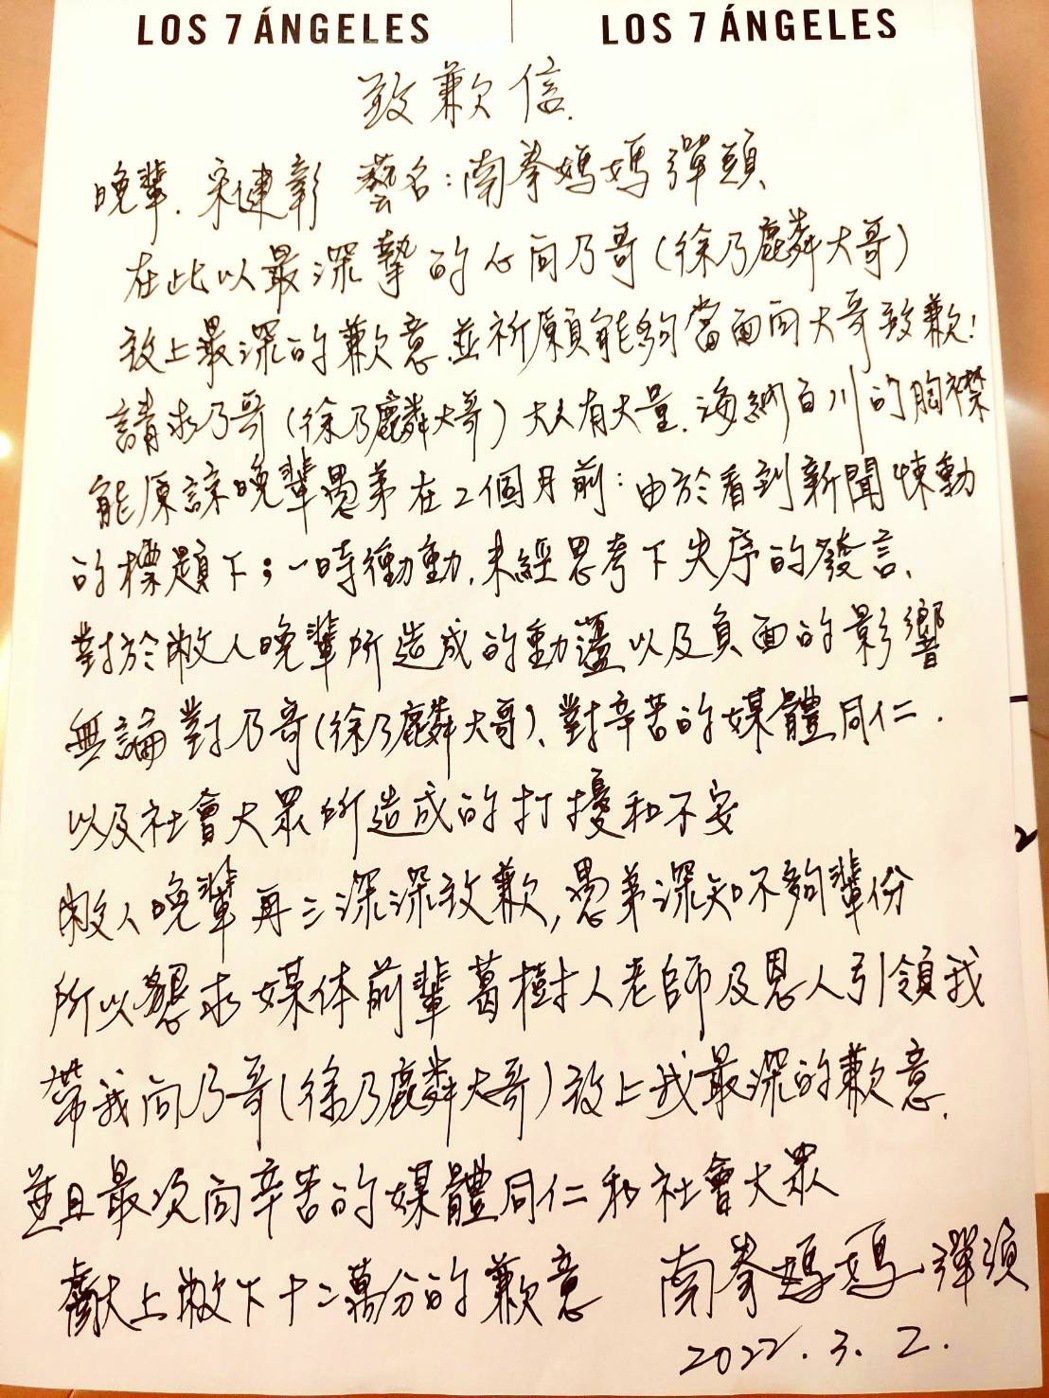 LOS 7 ÁNGELES
LOS 7 ÁNGELES
致歉信.
晚輩.宋健彰 藝名:南拳媽媽彈頭、
在此以最深摯的心向乃哥(徐乃麟大哥)
致上最深的歉意.並祈願能夠當面向大哥致歉!
請求乃哥(徐乃麟大哥)大人有大量.海納百川的胸襟
能原諒晚輩愚弟在2個月前:由於看到新聞悚動
的標題下;一時衝動.未經思考下失序的發言、
對於敝人晚輩所造成的動盪以及負面的影響
無論對乃哥(徐乃麟大哥)、對辛苦的媒體同仁.
以及社會大眾所造成的打擾和不安
敝人晚輩再三深深致歉,愚弟深知不夠輩份
所以懇求媒体前輩葛樹人老師及恩人引領我
帶我向乃哥(徐乃麟大哥)致上我最深的歉意.
並且最次向辛苦的媒體同仁和社會大眾
獻上敝下十二萬分的歉意 南拳媽媽彈頭
2022.3.2.